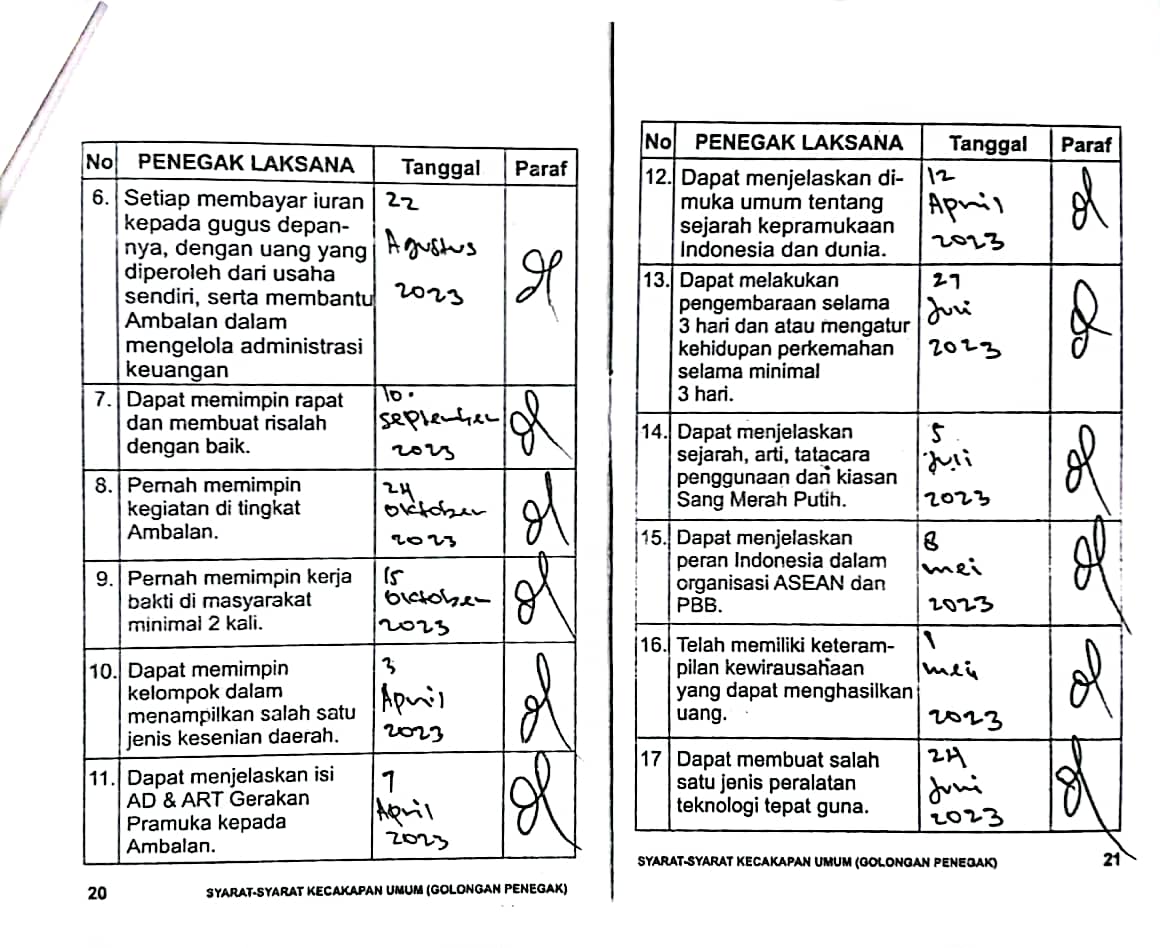 No PENEGAK LAKSANA Tanggal Paraf
6. Setiap membayar iuran 22
kepada gugus depan-
nya, dengan uang yang Agustus
diperoleh dari usaha
sendiri, serta membantu 2023
Ambalan dalam
mengelola administrasi
keuangan
7. Dapat memimpin rapat 10.
dan membuat risalah September
dengan baik. 2023
8. Pernah memimpin 24
kegiatan di tingkat Oktober
Ambalan. 2023
9. Pernah memimpin kerja 15
bakti di masyarakat Oktober
minimal 2 kali. 2023
10. Dapat memimpin 3
kelompok dalam April
menampilkan salah satu
jenis kesenian daerah. 2023
11. Dapat menjelaskan isi 7
AD & ART Gerakan April
Pramuka kepada 2023
Ambalan.
20 SYARAT-SYARAT KECAKAPAN UMUM (GOLONGAN PENEGAK)
No PENEGAK LAKSANA Tanggal Paraf
12. Dapat menjelaskan di- 12
muka umum tentang April
sejarah kepramukaan 2023
Indonesia dan dunia.
13. Dapat melakukan
pengembaraan selama
3 hari dan atau mengatur
kehidupan perkemahan 2023
selama minimal
3 hari.
14. Dapat menjelaskan 5
sejarah, arti, tatacara Juli
penggunaan dan kiasan
Sang Merah Putih. 2023
15. Dapat menjelaskan 8
peran Indonesia dalam mei
organisasi ASEAN dan
PBB. 2023
16. Telah memiliki keteram- 1
pilan kewirausahaan mei
yang dapat menghasilkan
uang. 2023
17 Dapat membuat salah 24
satu jenis peralatan Juni
teknologi tepat guna. 2023
SYARAT-SYARAT KECAKAPAN UMUM (GOLONGAN PENEGAK) 21